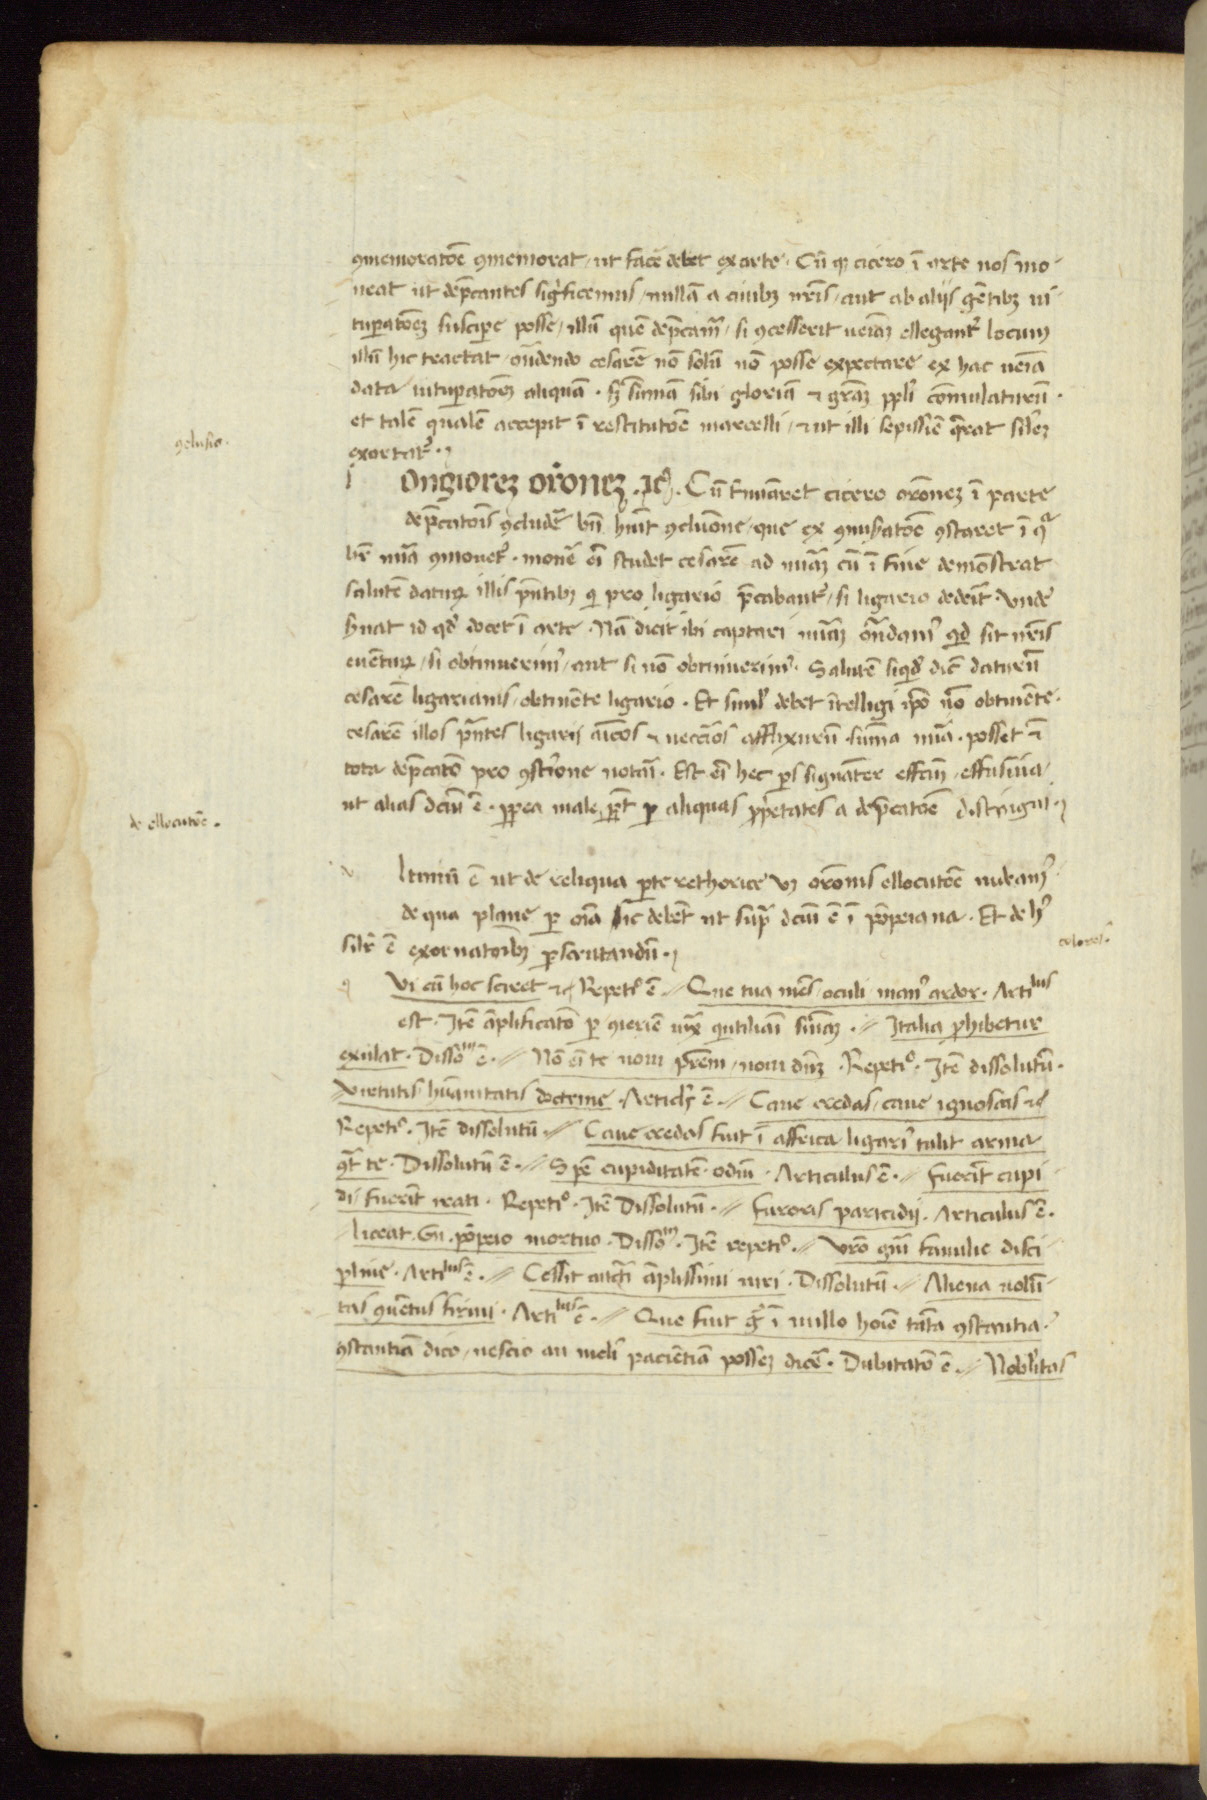 ꝯmemoratōē ꝯmemorat, ut facē debet ex arte. Cū q̨ cicero ī arte nos mo
neat ut dep̄cantes sig̃ficemus, nullā a ciuibꝫ nr̄is, aut ab alijs gētibꝫ ui
tuꝑatōeꝫ susciꝑe posse, illū quē dep̄camr̄, si ꝯcesserit ueīaꝫ ellegant̃ locum
illū hic tractat, on̄dendo cesarē nō solū nō posse expectare ex hac ueīa
data uituꝑatōeꝫ aliquā. sꝫ sūmā sibi gloriā ⁊ gr̄aꝫ ppl̄i cōmulaturū.
et talē qualē accepit ī restitutōē marcelli, ⁊ ut illi sepissīē q̄rat sil̄eꝫ
exortat̃.
ꝯclusio.
l ongiorez or̄onez ꝛc̄. Cū firmaret cicero or̄oneꝫ ī parte
dep̄catōīs ꝯcludē bn̄ hīūt ꝯcluōne, que ex ꝯq̄satōē ꝯstaret ī q̄
br̄ mīā ꝯmouet̃. monē eī studet cesarē ad mīaꝫ cū ī fine demōstrat
salutē daturꝫ illis p̄ntibꝫ q̨ pro ligario p̄cabant̃, si ligario dederīt. Vnde
s̄uat id qd̄ docet ī arte. Nā dicit ibi captari mīaꝫ on̄dam̃ qd̄ sit nr̄is
euētuꝫ, si obtinuerim̃, aut si nō obtinuerim̃. Salutē siqd̄ dic̄ daturū
cesarē ligarianis, obtinēte ligario. Et simil̄ debet ītelligi ip̄o nō obtinēte.
cesarē illos p̄ntes ligarij aīcos ⁊ necc̄ios afflixurū. sūma mīa. posset ⁊
tota dep̄catō pro ꝯst̄ione notari. Est eī hec ps̄ signāter effcīū, effusiua,
ut alias dcm̄ ē. ꝓpea male pt̄ ꝑ aliquas ꝓp̄etates a dep̄catōē distīgui.
de ellocutōē.
v ltimū ē ut de reliqua ꝑte rethorice uꝫ or̄onis ellocutōē uideam̃
de qua plane ꝑ oīa sic debet ut sup̄ dcm̄ ē ī pōpeiana. Et de h̃
silr̄ ē exornatōibꝫ ꝑscrutandū.
colores.
q Vi cū hoc sciret ⁊c̄ Repeti° ē // Que tua mēs, oculi man̄ ardor. Artilus
est. Itē āplificatō ꝑ ꝯgeriē iux̄ quītilianī sniāꝫ. // Italia ꝓhibetur
exulat. Dissōm ē. // Nō eī te noui p̄rem, noui dn̄ꝫ. Repeti°. Itē dissolutū.
// Virtutis, hūanitatis doctrine. Articls̄ ē. // Caue credas, caue ignoscas ⁊c̄
Repeti°. Itē dissolutū. // Caue credas fuit ī affrica ligari̾ tulit arma
ꝯt̄ te. Dissolutū ē. // Spē cupiditatē. odiū. Articulus ē. // fuerīt cupi
di fuerīt irati. Repeti°. Itē Dissolutū. // furoris paricidij. Articulus ē.
// liceat. Gn̄. pōpeio mortuo. Dissōm. Itē repeti°. // Vr̄o gn̄i familie disci
pline. Artilus ē. // Cessit auct̄i āplissimi uiri. Dissolutū. // Aliena uolū
tas ꝯuētus firmi. Artilus ē. // Que fuit g̃ ī nullo hoīē tāta ꝯstantia.
ꝯstantiā dico, nescio an meli̾ pacientiā posseꝫ dicē. Dubitatō ē. // Nobl̄itas